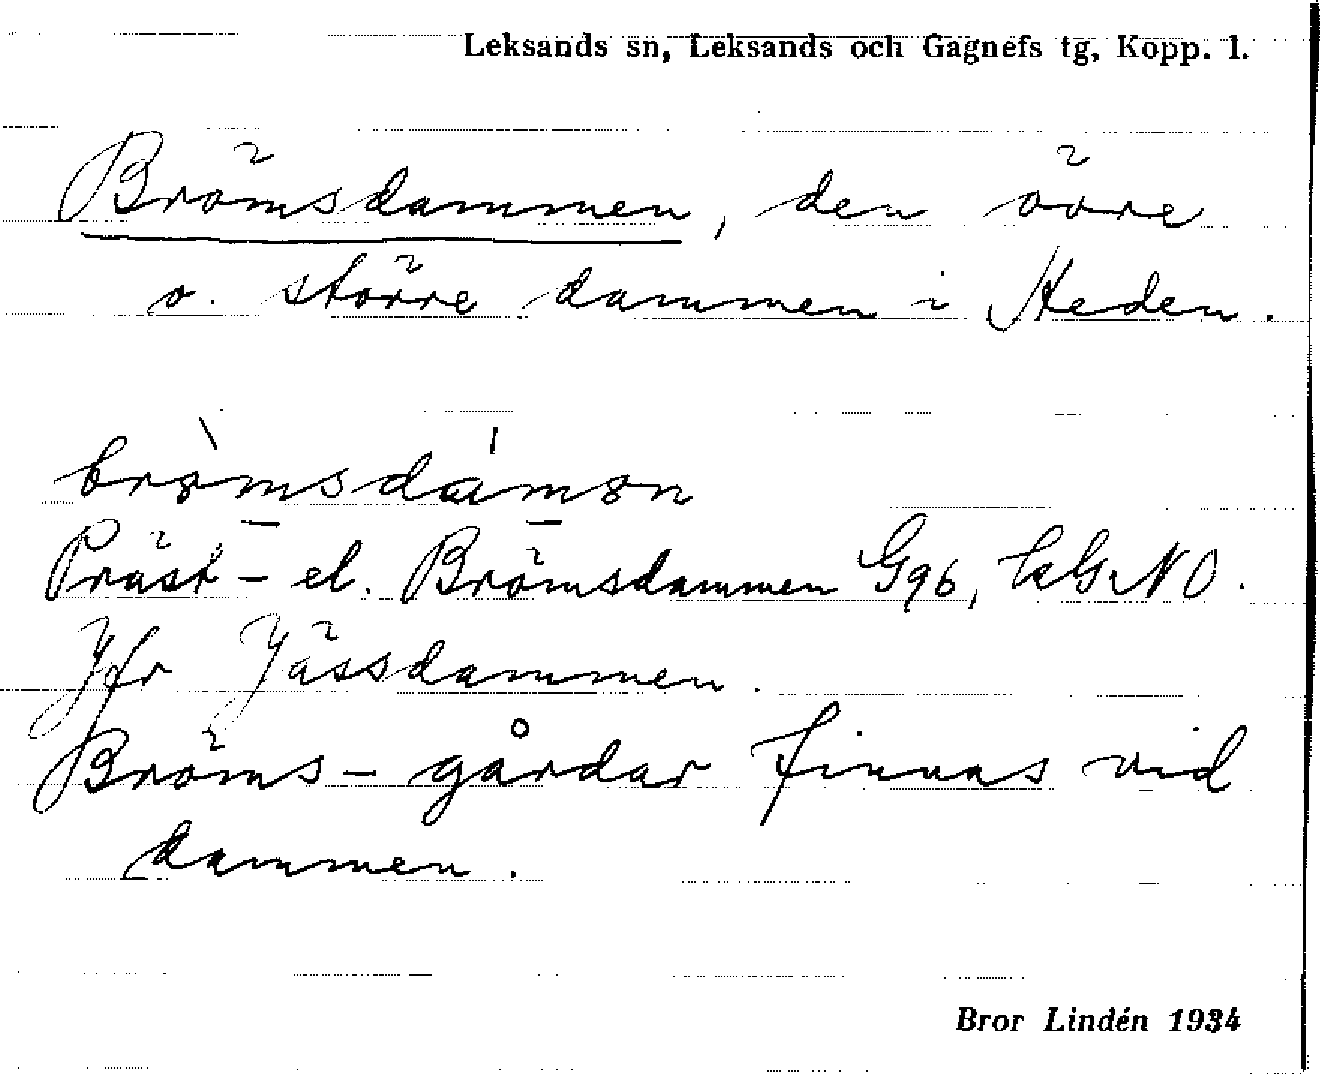 Leksands sn, Leksands och Gagnefs tg, Kopp. l.
Brömsdammen, den övre
o. större dammen i Heden.
brömsdamən
Präst- el. Brömsdammen G96, NO.
Jfr Jässdammen.
Bröms-gårdar finnas vid
dammen.
Bror Lindén 1934